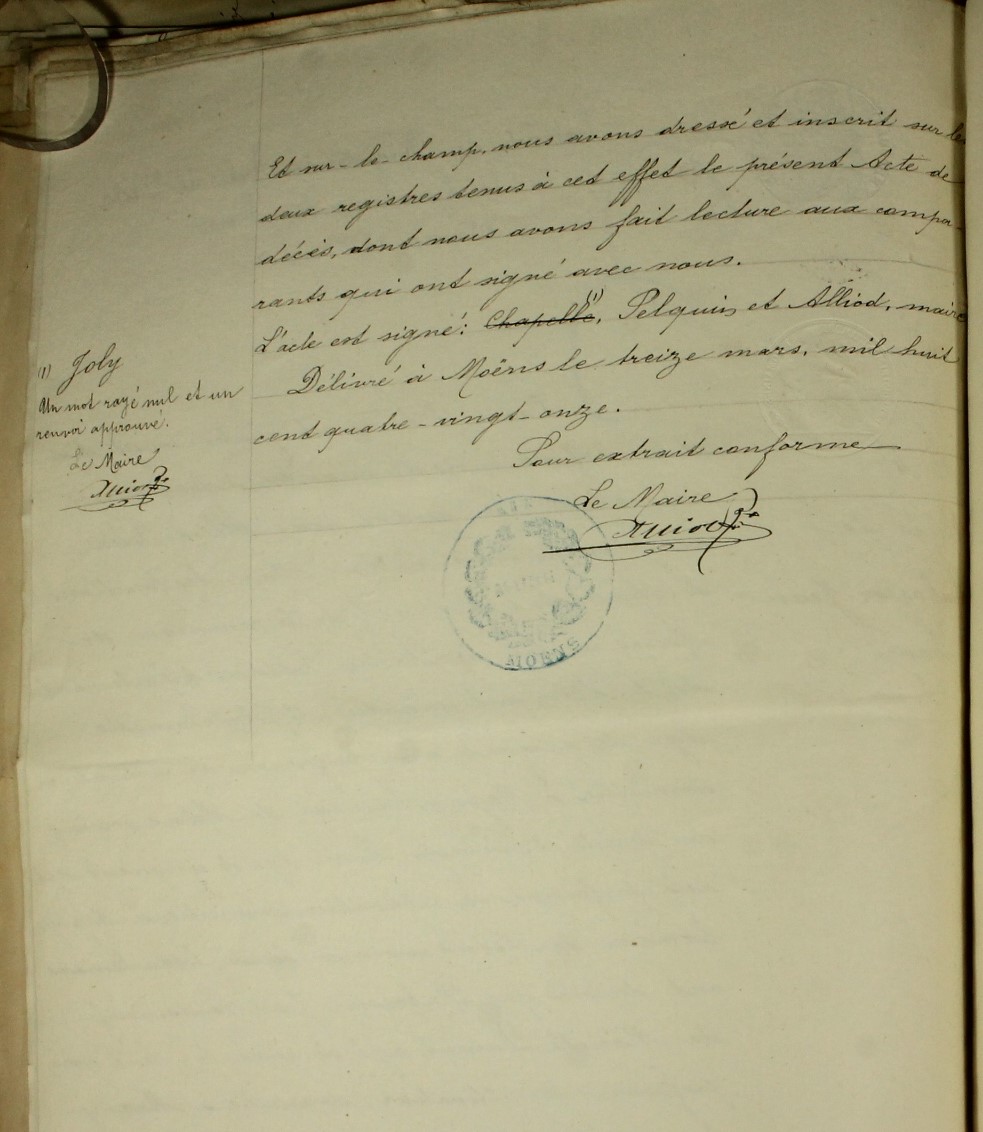 Et sur-le-champ, nous avons dressé et inscrit sur les
deux registres tenus à cet effet le présent Acte de
décès, dont nous avons fait lecture aux compa-
rants qui ont signé avec nous.
L'acte est signé: Chapelle (1), Pelquin et Alliod, maire
Délivré à Moëns le treize mars, mil huit
cent quatre-vingt-onze.
Pour extrait conforme
Le Maire
Alliod
(1) Joly
Un mot rayé nul et un
renvoi approuvé.
Le Maire
Alliod
MOËNS